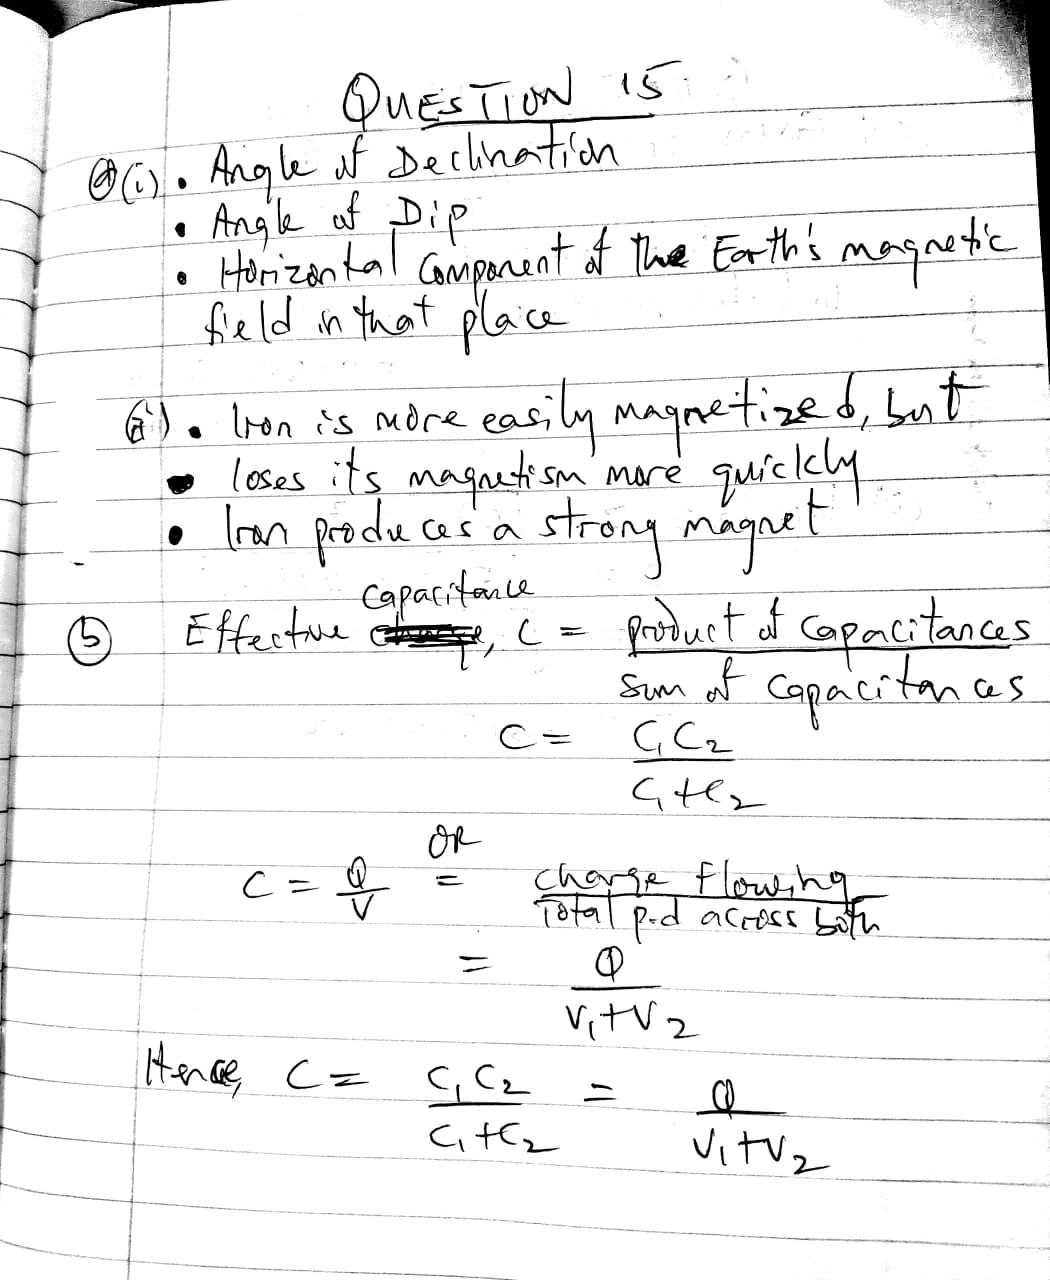 QUESTION 15
(a)(i). Angle of Declination
• Angle of Dip
• Horizontal Component of the Earth's magnetic
field in that place
(ii). Iron is more easily magnetized, but
• loses its magnetism more quickly
• Iron produces a strong magnet
capacitance
(b) Effective charge, C = product of capacitances
sum of capacitances
C = C₁C₂
C₁+C₂
OR
C = Q = charge flowing
V Total p.d across both
= Q
V₁+V₂
Hence, C = C₁C₂ = Q
C₁+C₂ V₁+V₂